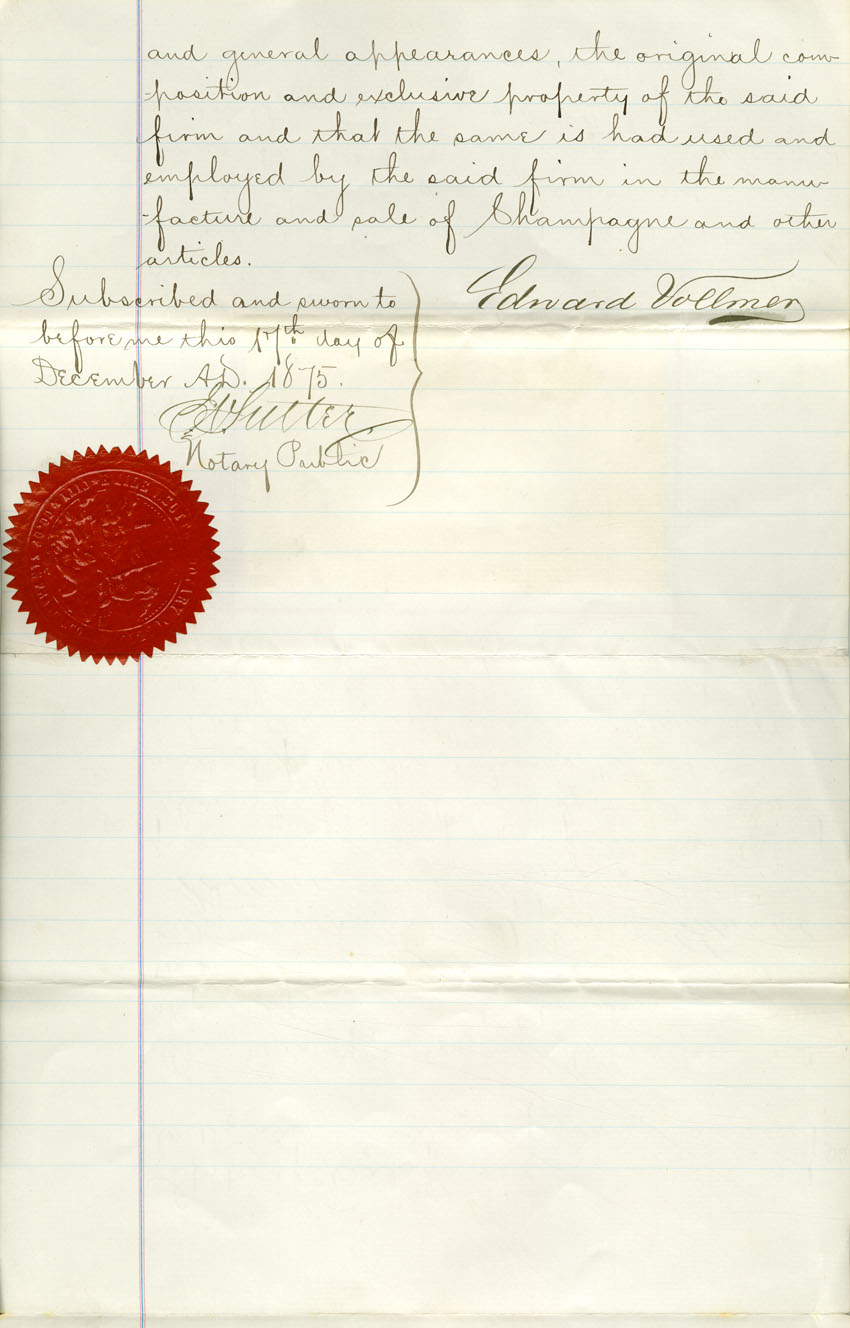 and general appearances, the original com-
-position and exclusive property of the said
firm and that the same is had used and
employed by the said firm in the manu-
-facture and sale of Champagne and other
articles.
Edward Vollmer
Subscribed and sworn to
before me this 17th day of
December A.D. 1875.
Sutter
Notary Public